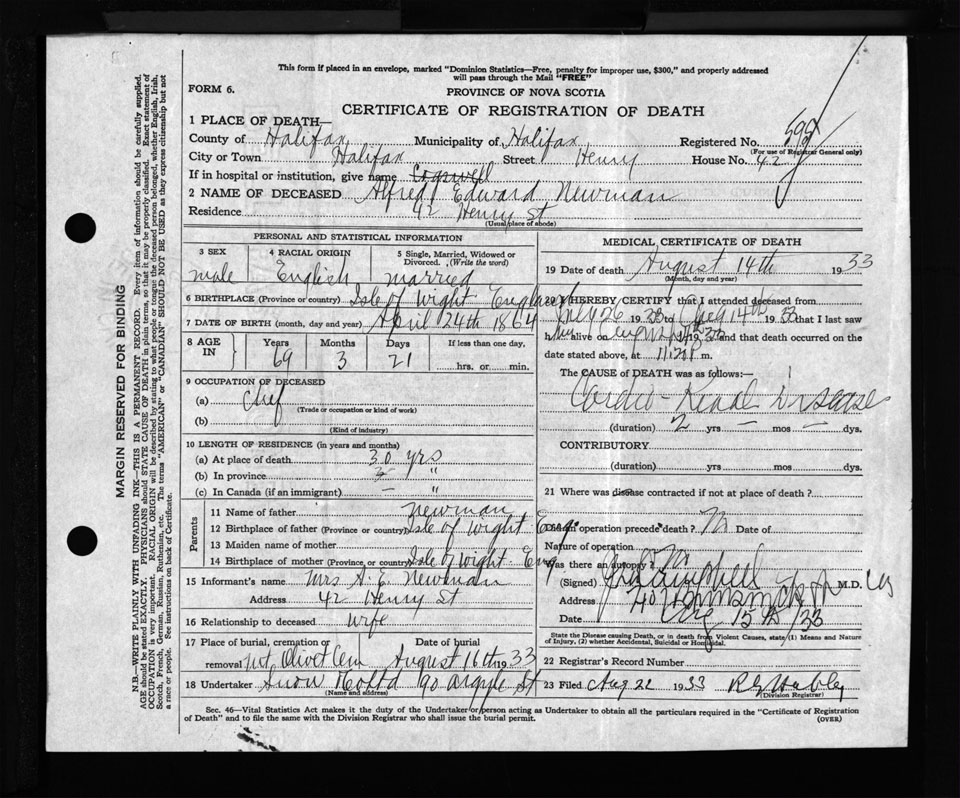 This form if placed in an envelope, marked "Dominion Statistics—Free, penalty for improper use, $300," and properly addressed
will pass through the Mail "FREE"
FORM 6.
PROVINCE OF NOVA SCOTIA
CERTIFICATE OF REGISTRATION OF DEATH
1 PLACE OF DEATH—
County of Halifax Municipality of Halifax Registered No.
(For use of Registrar General only)
City or Town Halifax Street Henry House No. 42
If in hospital or institution, give name Cogswell
2 NAME OF DECEASED Alfred Edward Newman
Residence 42 Henry St
(Usual place of abode)
PERSONAL AND STATISTICAL INFORMATION
3 SEX male
4 RACIAL ORIGIN English
5 Single, Married, Widowed or Divorced. (Write the word) married
6 BIRTHPLACE (Province or country) Isle of Wight England
7 DATE OF BIRTH (month, day and year) April 24th 1864
8 AGE IN Years 69 Months 3 Days 21 If less than one day, hrs. or min.
9 OCCUPATION OF DECEASED
(a) Chef
(Trade or occupation or kind of work)
(b)
(Kind of industry)
10 LENGTH OF RESIDENCE (in years and months)
(a) At place of death 30 yrs
(b) In province "
(c) In Canada (if an immigrant) — "
Parents
11 Name of father Newman
12 Birthplace of father (Province or country) Isle of Wight Eng
13 Maiden name of mother
14 Birthplace of mother (Province or country) Isle of Wight. Eng
15 Informant's name Mrs A. E. Newman
Address 42 Henry St
16 Relationship to deceased wife
17 Place of burial, cremation or removal Mt Olivet Cem
Date of burial August 16th 1933
18 Undertaker Snow & Co Ltd 90 Argyle St
(Name and address)
MEDICAL CERTIFICATE OF DEATH
19 Date of death August 14th 1933
(Month, day and year)
HEREBY CERTIFY that I attended deceased from
26 1933 to Aug 14th 1933 that I last saw
h alive on 1933 and that death occurred on the
date stated above, at m.
The CAUSE OF DEATH was as follows:—
Cardio-Renal Disease
(duration) 2 yrs — mos — dys.
CONTRIBUTORY
(duration) yrs mos dys.
21 Where was disease contracted if not at place of death?
Did an operation precede death? Date of
Nature of operation
Was there an autopsy?
(Signed) M.D.
Address
Date Aug 15th/33
State the Disease causing Death, or in death from Violent Causes, state (1) Means and Nature
of Injury, (2) whether Accidental, Suicidal or Homicidal.
22 Registrar's Record Number
23 Filed Aug 22 1933
(Division Registrar)
Sec. 46—Vital Statistics Act makes it the duty of the Undertaker or person acting as Undertaker to obtain all the particulars required in the "Certificate of Registration
of Death" and to file the same with the Division Registrar who shall issue the burial permit.
(OVER)
MARGIN RESERVED FOR BINDING
N.B.—WRITE PLAINLY WITH UNFADING INK—THIS IS A PERMANENT RECORD. Every item of information should be carefully supplied.
AGE should be stated EXACTLY. PHYSICIANS should STATE CAUSE OF DEATH in plain terms, so that it may be properly classified. Exact statement of
OCCUPATION is very important. RACIAL ORIGIN will be described by stating to what people or tongue the deceased person belonged, whether English, Irish,
Scotch, French, German, Russian, Ruthenian, etc. The terms "AMERICAN" or "CANADIAN" SHOULD NOT BE USED as they express citizenship but not
a race or people. See instructions on back of Certificate.